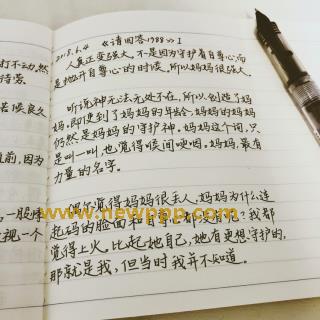 2018.6.4 《请回答1988》I
人真正变强大，不是因为守护着自尊心，而
是抛开自尊心的时候，所以妈妈很强大。
听说神无法无处不在，所以创造了妈
妈。即使到了妈妈的年龄，妈妈的妈妈
仍然是妈妈的守护神。妈妈这个词，只
是叫一叫，也觉得喉间哽咽。妈妈，最有
力量的名字。
偶尔觉得妈妈很丢人，妈妈为什么连
起码的脸面和自尊心都没有呢？我都
觉得上火。比起她自己，她有更想守护的，
那就是我，但当时我并不知道。
打不动，然
待劳。
若候良久
道前，因为
，一股悻
视一个
www.newppp.com